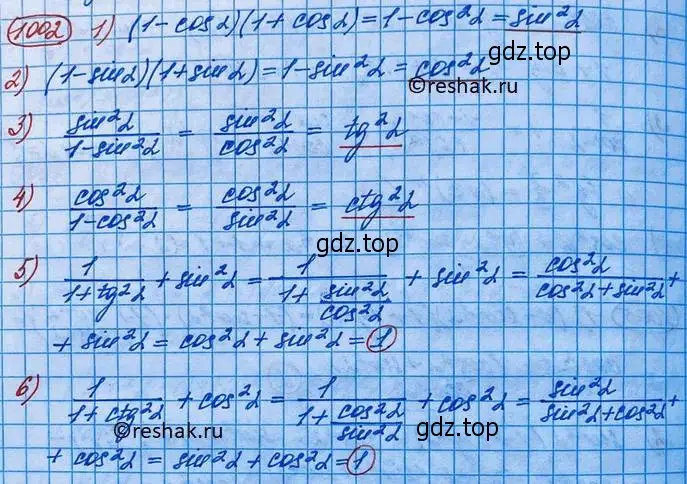 1002 1) (1-cosα)(1+cosα)=1-cos²α=sin²α
gdz.top
2) (1-sinα)(1+sinα)=1-sin²α=cos²α
©reshak.ru
3) sin²α/(1-sin²α) = sin²α/cos²α = tg²α
4) cos²α/(1-cos²α) = cos²α/sin²α = ctg²α
gdz.top
5) 1/(1+tg²α) + sin²α = 1/(1+sin²α/cos²α) + sin²α = cos²α/(cos²α+sin²α) +
+ sin²α = cos²α + sin²α = 1
6) 1/(1+ctg²α) + cos²α = 1/(1+cos²α/sin²α) + cos²α = sin²α/(sin²α+cos²α) +
©reshak.ru
gdz.top
+ cos²α = sin²α + cos²α = 1